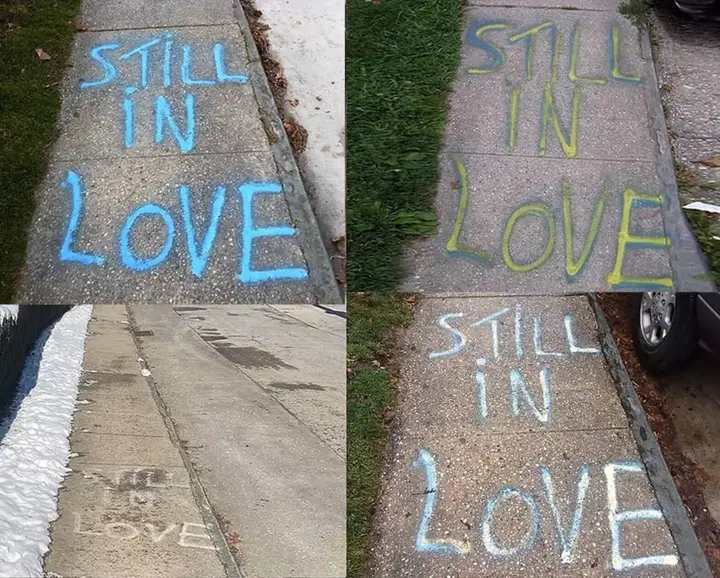 STiLL
iN
LOVE
STiLL
iN
LOVE
STILL
IN
LOVE
STiLL
iN
LOVE